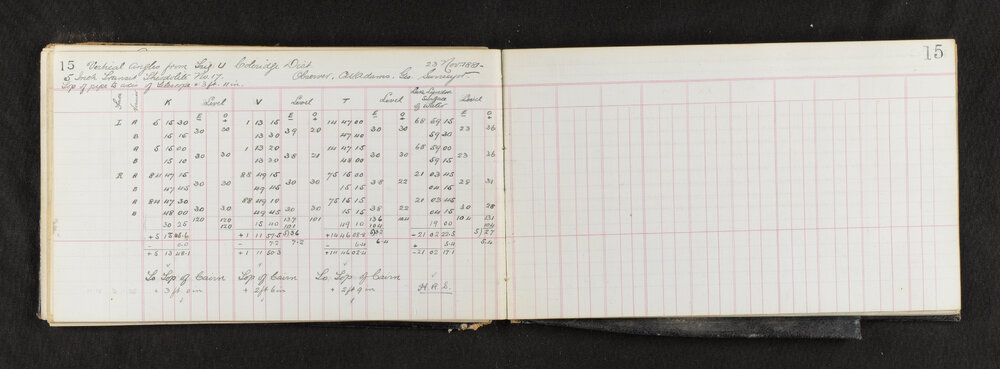 15 Vertical Angles from Trig. U Coleridge Dist. 23 Nov. 1881
5 Inch Transit Theodolite No. 17. Observer, C.W. Adams, Geo. Surveyor
Top of pipe to axis of Telescope + 3 ft. 11 in.
K Level V Level T Level Lake Lyndon Surface of Water Level
E O E O E O E O
L A 5 15 30 1 13 15 14 47 00 68 59 15
30 30 39 20 30 30 23 36
B 15 15 13 30 47 40 59 30
A 5 16 00 1 13 20 14 47 15 68 59 00
30 30 38 21 30 30 23 36
B 15 10 13 30 48 00 59 15
R A 84 47 15 88 49 15 75 15 00 21 03 45
30 30 30 30 38 22 28 31
B 47 45 49 45 15 15 04 15
A 84 47 30 88 49 10 75 15 15 21 03 45
30 30 30 30 38 22 30 28
B 48 00 49 45 15 15 04 15
120 120 137 101 136 104 104 131
30 25 120 15 40 101 49 10 104 19 00 104
5)36 5)32 5)27
- 0.0 - 7.2 7.2 - 6.4 6.4 + 5.4 5.4
+5 13 48.1 +1 11 50.3 +14 46 02.4 -21 02 17.1
To Top of Cairn Top of Cairn To Top of Cairn
+ 3 ft 0 in + 2 ft 6 in + 2 ft 9 in
15